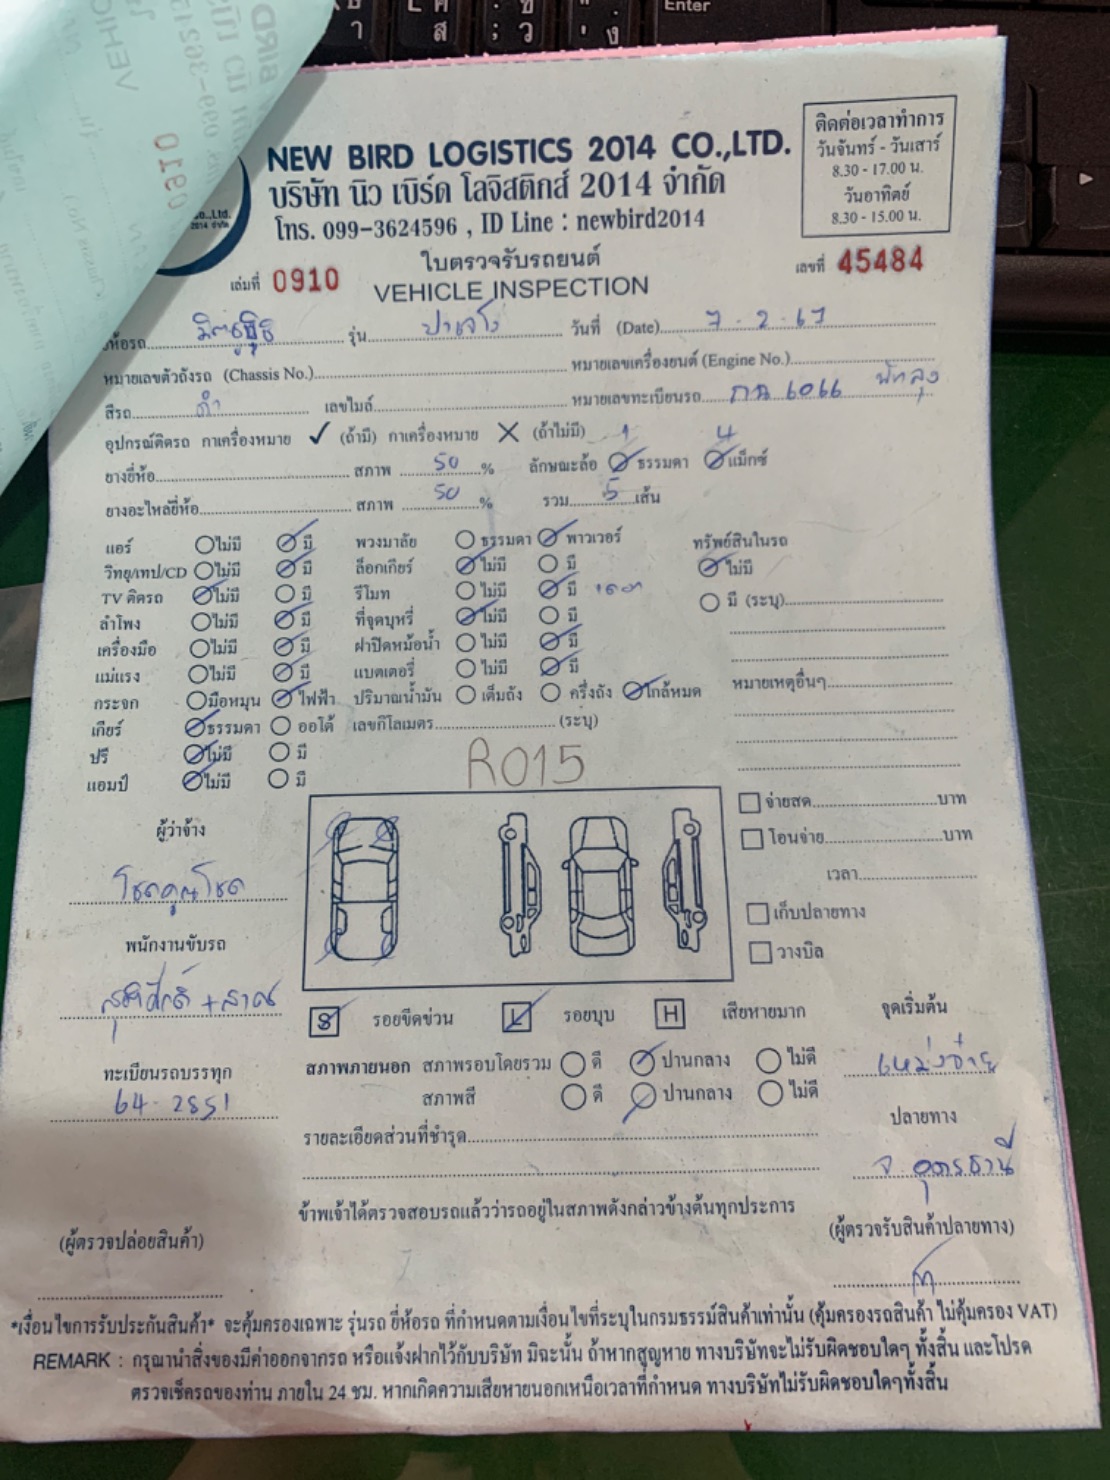 Enter
0910
Co.,Ltd.
NEW BIRD LOGISTICS 2014 CO.,LTD.
บริษัท นิว เบิร์ด โลจิสติกส์ 2014 จำกัด
โทร. 099-3624596 , ID Line : newbird2014
ติดต่อเวลาทำการ
วันจันทร์ - วันเสาร์
8.30 - 17.00 น.
วันอาทิตย์
8.30 - 15.00 น.
ใบตรวจรับรถยนต์
เล่มที่ 0910 VEHICLE INSPECTION เลขที่ 45484
ห้อรถ รุ่น ปาเจโร วันที่ (Date) 7 . 2 . 67
หมายเลขตัวถังรถ (Chassis No.) หมายเลขเครื่องยนต์ (Engine No.)
สีรถ ดำ เลขไมล์ หมายเลขทะเบียนรถ 6066 พัทลุง
อุปกรณ์ติดรถ กาเครื่องหมาย ✓ (ถ้ามี) กาเครื่องหมาย ✕ (ถ้าไม่มี)
ยางยี่ห้อ สภาพ 50 % ลักษณะล้อ 1 ธรรมดา 4 แม็กซ์
ยางอะไหล่ยี่ห้อ สภาพ 50 % รวม 5 เส้น
แอร์ ไม่มี มี พวงมาลัย ธรรมดา พาวเวอร์ ทรัพย์สินในรถ
วิทยุ/เทป/CD ไม่มี มี ล็อกเกียร์ ไม่มี มี ไม่มี
TV ติดรถ ไม่มี มี รีโมท ไม่มี มี มี (ระบุ)
ลำโพง ไม่มี มี ที่จุดบุหรี่ ไม่มี มี
เครื่องมือ ไม่มี มี ฝาปิดหม้อน้ำ ไม่มี มี
แม่แรง ไม่มี มี แบตเตอรี่ ไม่มี มี หมายเหตุอื่นๆ
กระจก มือหมุน ไฟฟ้า ปริมาณน้ำมัน เต็มถัง ครึ่งถัง ใกล้หมด
เกียร์ ธรรมดา ออโต้ เลขกิโลเมตร (ระบุ)
ปรี ไม่มี มี
แอมป์ ไม่มี มี
R015
ผู้ว่าจ้าง
โชคคูณโชค
พนักงานขับรถ
ทะเบียนรถบรรทุก
64-2851
จ่ายสด บาท
โอนจ่าย บาท
เวลา
เก็บปลายทาง
วางบิล
S รอยขีดข่วน L รอยบุบ H เสียหายมาก จุดเริ่มต้น
สภาพภายนอก สภาพรอบโดยรวม ดี ปานกลาง ไม่ดี
สภาพสี ดี ปานกลาง ไม่ดี
ปลายทาง
จ. อุดรธานี
รายละเอียดส่วนที่ชำรุด
ข้าพเจ้าได้ตรวจสอบรถแล้วว่ารถอยู่ในสภาพดังกล่าวข้างต้นทุกประการ
(ผู้ตรวจปล่อยสินค้า) (ผู้ตรวจรับสินค้าปลายทาง)
*เงื่อนไขการรับประกันสินค้า* จะคุ้มครองเฉพาะ รุ่นรถ ยี่ห้อรถ ที่กำหนดตามเงื่อนไขที่ระบุในกรมธรรม์สินค้าเท่านั้น (คุ้มครองรถสินค้า ไม่คุ้มครอง VAT)
REMARK : กรุณานำสิ่งของมีค่าออกจากรถ หรือแจ้งฝากไว้กับบริษัท มิฉะนั้น ถ้าหากสูญหาย ทางบริษัทจะไม่รับผิดชอบใดๆ ทั้งสิ้น และโปรด
ตรวจเช็ครถของท่าน ภายใน 24 ชม. หากเกิดความเสียหายนอกเหนือเวลาที่กำหนด ทางบริษัทไม่รับผิดชอบใดๆทั้งสิ้น